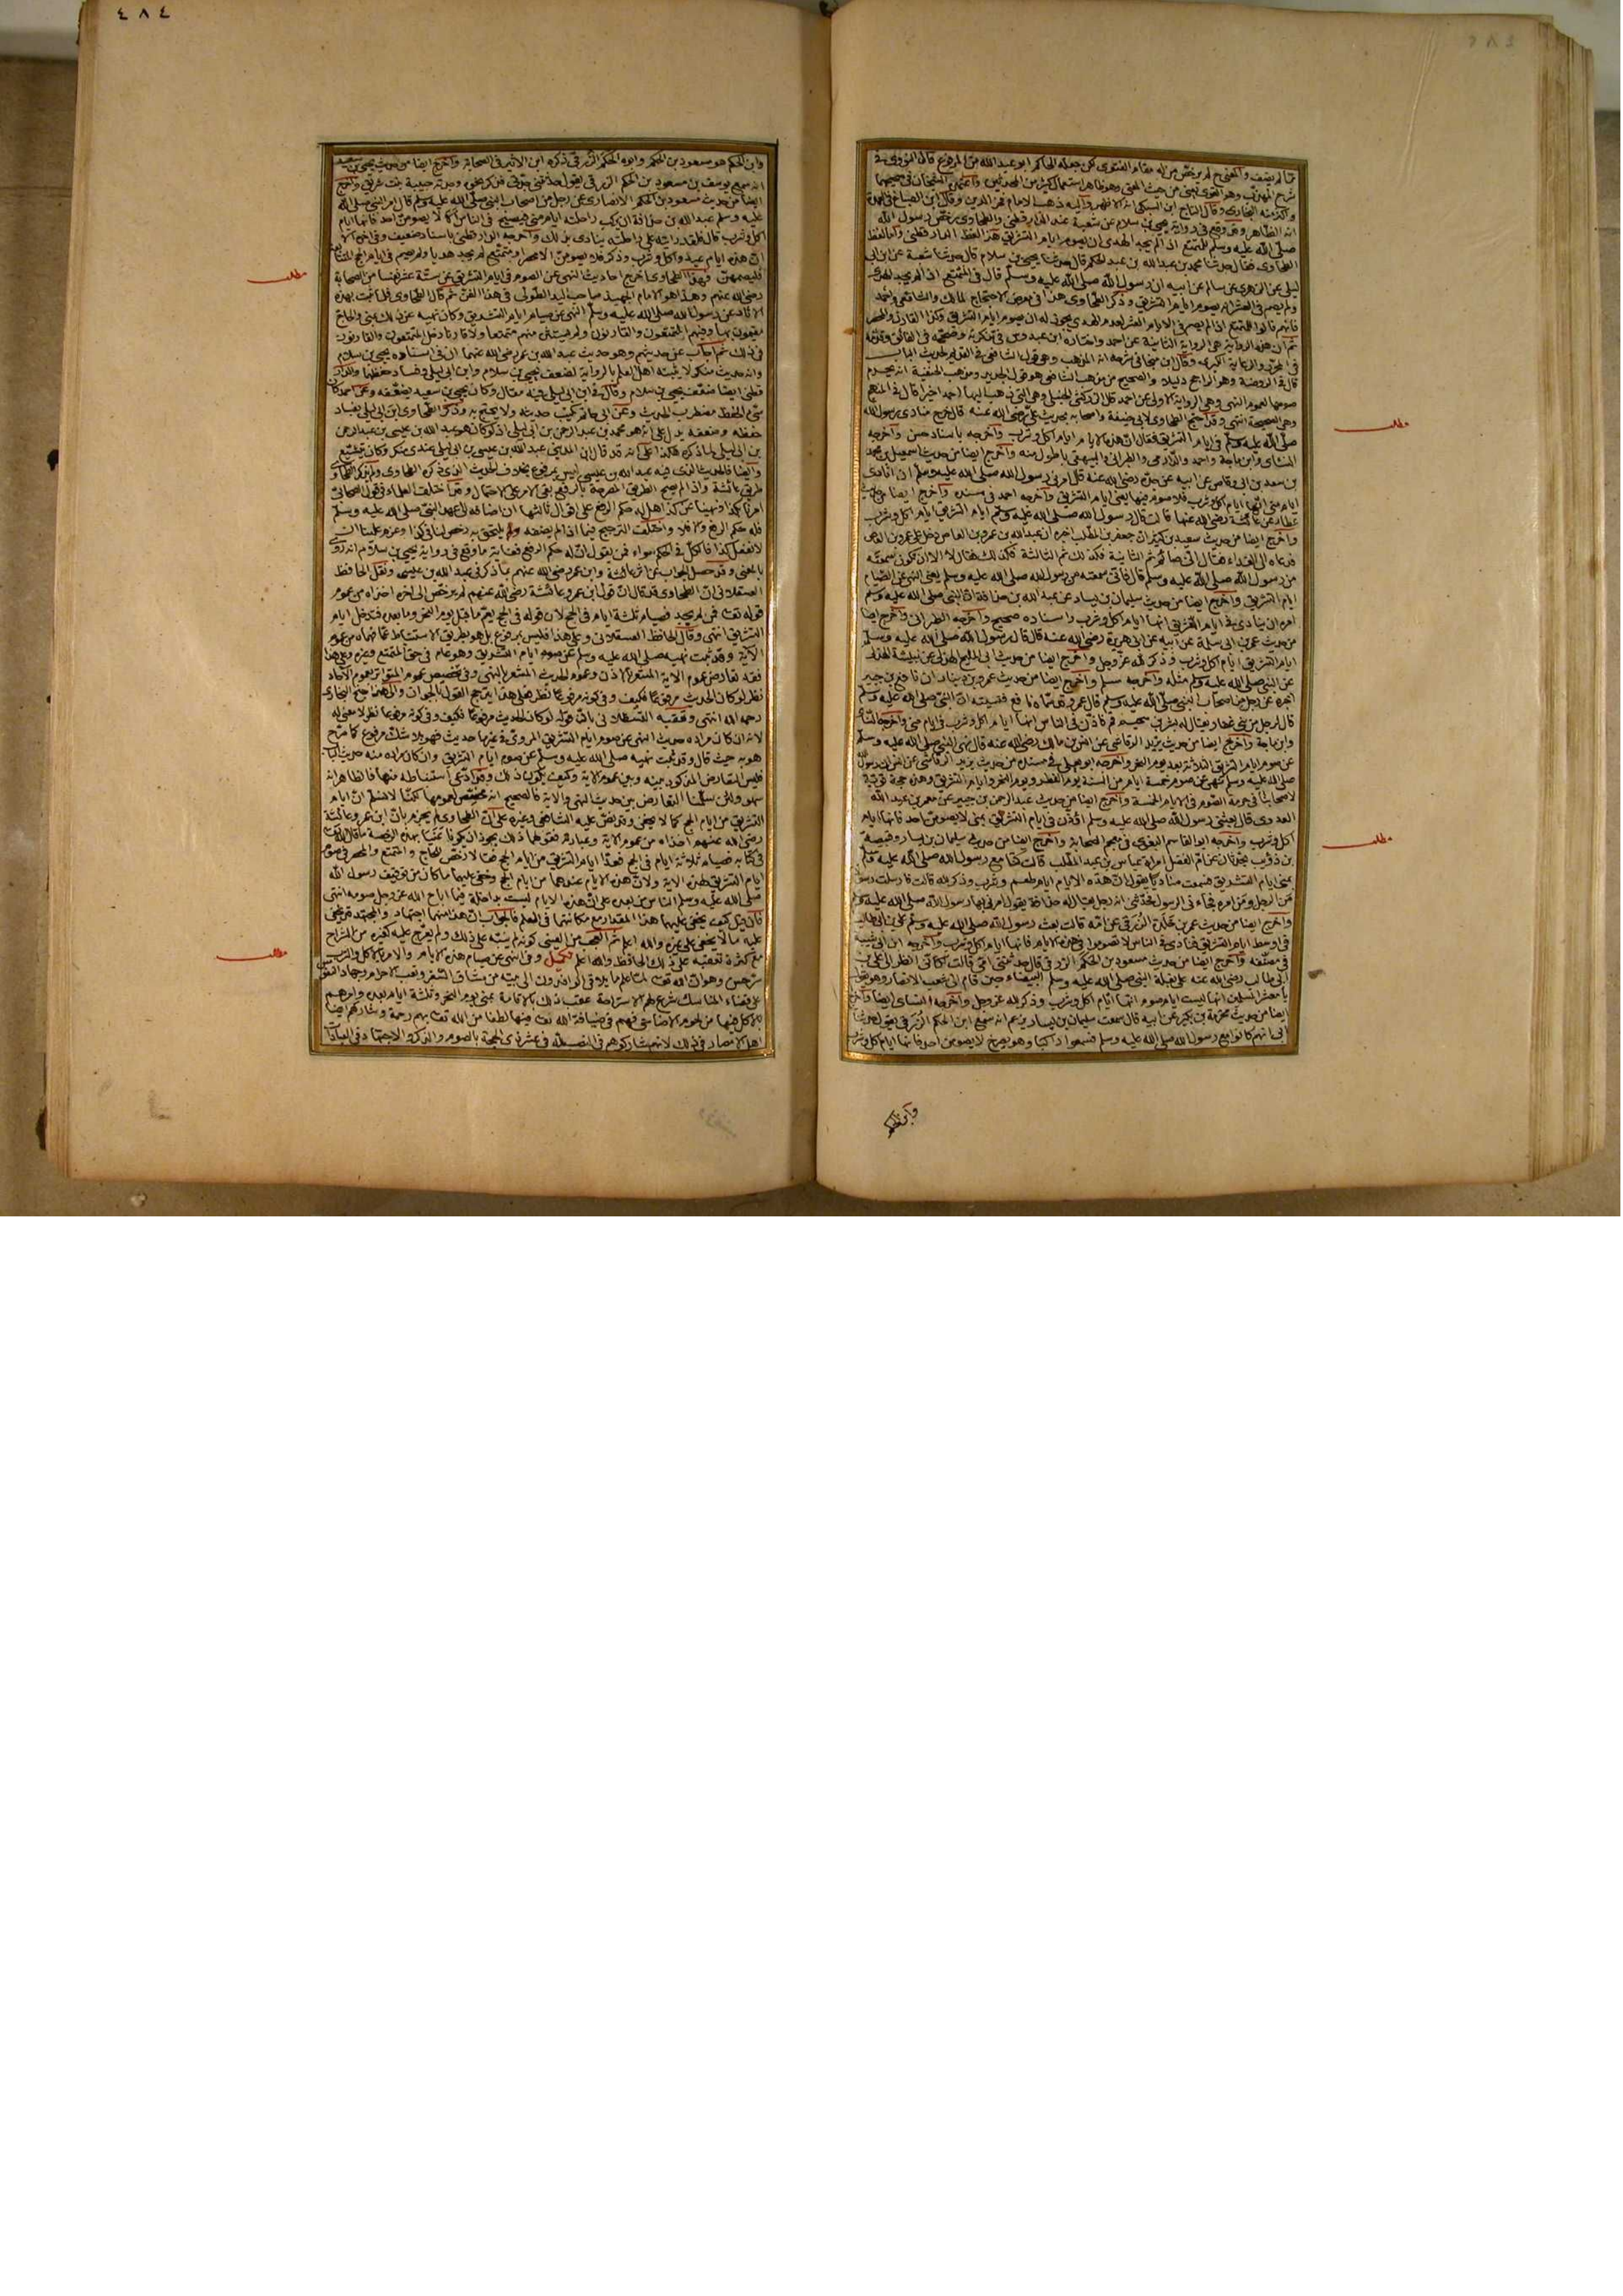 شرح المهذب وهو القوي يعني من حيث المعنى وهو ظاهر استعمال كثير من المحدثين واعتمده الشيخان في صحيحهما
واكثر منه البخاري وقال التاج ابن السبكي انه الاظهر واليه ذهب الامام فخر الدين وقال ابن الصباغ في العدة
انه الظاهر وقد وقع في رواية يحيى بن سلام عن شعبة عند الدارقطني والطحاوي رخص رسول الله
صلى الله عليه وسلم للمتمتع اذا لم يجد الهدى ان يصوم ايام التشريق هذا لفظ الدارقطني واما لفظ
الطحاوي فقال حدثنا محمد بن عبد الله بن عبد الحكم قال حدثنا يحيى بن سلام قال حدثنا شعبة عن ابن ابي
ليلى عن الزهري عن سالم عن ابيه ان رسول الله صلى الله عليه وسلم قال في المتمتع اذا لم يجد الهدى
ولم يصم في العشر انه يصوم ايام التشريق وذكر الطحاوي هذا في معرض الاحتجاج لمالك والشافعي واحمد
فانهم قالوا للمتمتع اذا لم يصم في الايام العشر لعدم الهدى يجوز له ان يصوم ايام التشريق وكذا القارن والمحصر
ثم ان هذه الرواية هي الرواية الثانية عن احمد واختاره ابن عبدوس في تذكرته وصححه في الفائق وقدمه
في المحرر والرعاية الكبرى وقال ابن منجا في شرحه انه المذهب وهو قول الشافعي في القديم لحديث الباب
قال في الروضة وهو الراجح دليلا والصحيح من مذهب الشافعي هو قول الجديد ومذهب الحنفية انه يحرم
صومها لعموم النهي وهي الرواية الاولى عن احمد قال الزركشي الحنبلي وهي التي ذهب اليها احمد اخيرا قال في المبهج
وهي الصحيحة انتهى وقد احتج الطحاوي لابي حنيفة واصحابه بحديث علي رضي الله عنه قال خرج منادي رسول الله
صلى الله عليه وسلم في ايام التشريق فقال ان هذه الايام ايام اكل وشرب واخرجه باسناد حسن واخرجه
النسائي وابن ماجة واحمد والدارمي والطبراني والبيهقي باطول منه واخرج ايضا من حديث اسمعيل بن محمد
بن سعد بن ابي وقاص عن ابيه عن جده رضي الله عنه قال امرني رسول الله صلى الله عليه وسلم ان انادي
ايام منى انها ايام اكل وشرب فلا صوم فيها يعني ايام التشريق واخرجه احمد في مسنده واخرج ايضا من حديث
عطاء عن عائشة رضي الله عنها قالت قال رسول الله صلى الله عليه وسلم ايام التشريق ايام اكل وشرب
واخرج ايضا من حديث سعيد بن كثير ان جعفر بن المطلب اخبره ان عبد الله بن عمرو بن العاص دخل على عمرو بن العاص
فدعاه الى الغداء فقال اني صائم ثم الثانية فكذلك ثم الثالثة فكذلك فقال لا الا ان تكون سمعته
من رسول الله صلى الله عليه وسلم قال فاني سمعته من رسول الله صلى الله عليه وسلم يعني النهي عن الصيام
ايام التشريق واخرج ايضا من حديث سليمان بن يسار عن عبد الله بن حذافة ان النبي صلى الله عليه وسلم
امره ان ينادي في ايام التشريق انها ايام اكل وشرب واسناده صحيح واخرجه الطبراني واخرج ايضا
من حديث عمر بن ابي سلمة عن ابيه عن ابي هريرة رضي الله عنه قال قال رسول الله صلى الله عليه وسلم
ايام التشريق ايام اكل وشرب وذكر لله عز وجل واخرج ايضا من حديث ابي المليح الهذلي عن نبيشة الهذلي
عن النبي صلى الله عليه وسلم مثله واخرجه مسلم واخرج ايضا من حديث عمرو بن دينار ان نافع بن جبير
اخبره عن رجل من اصحاب النبي صلى الله عليه وسلم قال عمرو قد سماه نافع فنسيته ان النبي صلى الله عليه وسلم
قال لرجل من بني غفار يقال له بشر بن سحيم قم فاذن في الناس انها ايام اكل وشرب في ايام منى واخرجه النسائي
وابن ماجة واخرج ايضا من حديث يزيد الرقاشي عن انس بن مالك رضي الله عنه قال نهى النبي صلى الله عليه وسلم
عن صوم ايام التشريق الثلاثة بعد يوم النحر واخرجه ابو يعلى في مسنده من حديث يزيد الرقاشي عن انس ان رسول الله
صلى الله عليه وسلم نهى عن صوم خمسة ايام من السنة يوم الفطر ويوم النحر وايام التشريق وهذه حجة قوية
لاصحابنا في حرمة الصوم في الايام الخمسة واخرج ايضا من حديث عبد الرحمن بن جبير عن معمر بن عبد الله
العدوي قال بعثني رسول الله صلى الله عليه وسلم اؤذن في ايام التشريق بمنى لا يصومن احد فانها ايام
اكل وشرب واخرجه ابو القاسم البغوي في معجم الصحابة واخرج ايضا من حديث سليمان بن يسار وقبيصة
بن ذؤيب يحدثان عن ام الفضل امراة عباس بن عبد المطلب قالت كنا مع رسول الله صلى الله عليه وسلم
بمنى ايام التشريق فسمعت مناديا يقول ان هذه الايام ايام طعم وشرب وذكر لله قالت فارسلت رسولا
من الرجل ومن امره فجاءني الرسول فحدثني انه رجل يقال له حذافة يقول امرني بها رسول الله صلى الله عليه وسلم
واخرج ايضا من حديث عمر بن خلدة الزرقي عن امه قالت بعث رسول الله صلى الله عليه وسلم علي بن ابي طالب
في اوسط ايام التشريق فنادى في الناس لا تصوموا في هذه الايام فانها ايام اكل وشرب واخرجه ابن ابي شيبة
في مصنفه واخرج ايضا من حديث مسعود بن الحكم الزرقي قال حدثتني امي قالت لكأني انظر الى علي بن
ابي طالب رضي الله عنه على بغلة النبي صلى الله عليه وسلم البيضاء حين قام الى شعب الانصار وهو يقول
يا معشر المسلمين انها ليست ايام صوم انها ايام اكل وشرب وذكر لله عز وجل واخرجه النسائي ايضا واخرج
ايضا من حديث مخرمة بن بكير عن ابيه قال سمعت سليمان بن يسار يزعم انه سمع ابن الحكم الزرقي يقول حدثنا
ابي انهم كانوا مع رسول الله صلى الله عليه وسلم بمنى فسمعوا راكبا وهو يصرخ لا يصومن احد فانها ايام اكل وشرب
وابن الحكم
مطلب
مطلب
٤٨٤
وابن الحكم هو مسعود بن الحكم وابوه الحكم الزرقي ذكره ابن الاثير في الصحابة واخرج ايضا من حديث يحيى بن سعيد
انه سمع يوسف بن مسعود بن الحكم الزرقي يقول حدثتني جدتي فذكر نحوه وجدته حبيبة بنت شريق واخرج
ايضا من حديث مسعود بن الحكم الانصاري عن رجل من اصحاب النبي صلى الله عليه وسلم قال امر النبي صلى الله
عليه وسلم عبد الله بن حذافة ان يركب راحلته ايام منى فيصيح في الناس الا لا يصومن احد فانها ايام
اكل وشرب قال فلقد رايته على راحلته ينادي بذلك واخرجه الدارقطني باسناد ضعيف وفي اخره الا
ان هذه ايام عيد واكل وشرب وذكر فلا يصومن الا محصر او متمتع لم يجد هديا ولم يصم في ايام الحج المتتابعة
فليصمهن فهذا الطحاوي اخرج احاديث النهي عن الصوم في ايام التشريق عن ستة عشر نفسا من الصحابة
رضي الله عنهم وهذا هو الامام الجهبذ صاحب اليد الطولى في هذا الفن ثم قال الطحاوي فلما ثبت بهذه
الاثار عن رسول الله صلى الله عليه وسلم النهي عن صيام ايام التشريق وكان نهيه عن ذلك بمنى والحاج
مقيمون بها وفيهم المتمتعون والقارنون ولم يستثن منهم متمتعا ولا قارنا دخل المتمتعون والقارنون
في ذلك ثم اجاب عن حديثهم وهو حديث عبد الله بن عمر رضي الله عنهما ان في اسناده يحيى بن سلام
وانه حديث منكر لا يثبته اهل العلم بالرواية لضعف يحيى بن سلام وابن ابي ليلى وفساد حفظهما والدار
قطني ايضا ضعف يحيى بن سلام وقال في ابن ابي ليلى فيه مقال وكان يحيى بن سعيد يضعفه وعن احمد كان
سيء الحفظ مضطرب الحديث وعن ابي حاتم يكتب حديثه ولا يحتج به وذكر الطحاوي ابن ابي ليلى بفساد
حفظه وضعفه يدل على انه هو محمد بن عبد الرحمن بن ابي ليلى اذ لو كان هو عبد الله بن عيسى بن عبد الرحمن
بن ابي ليلى لما ذكره هكذا على انه قد قال ابن المديني عبد الله بن عيسى بن ابي ليلى عندي منكر وكان يتشيع
وايضا فالحديث الذي فيه عبد الله بن عيسى ليس بمرفوع بخلاف الحديث الذي ذكره الطحاوي ولم يذكر الطحاوي
طريق عائشة واذا لم يصح الطريق المصرحة بالرفع بقي الامر على الاحتمال وقد اختلف العلماء في قول الصحابي
امرنا بكذا ونهينا عن كذا هل له حكم الرفع على اقوال ثالثها ان اضافه الى عهد النبي صلى الله عليه وسلم
فله حكم الرفع والا فلا واختلف الترجيح فيما اذا لم يضفه ويلتحق به رخص لنا في كذا وعزم علينا ان
لا نفعل كذا فالكل في الحكم سواء فمن يقول ان له حكم الرفع فغاية ما وقع في رواية يحيى بن سلام انه روى
بالمعنى وقد حصل الجواب عن اثر عائشة وابن عمر رضي الله عنهم بما ذكر في عبد الله بن عيسى ونقل الحافظ
العسقلاني ان الطحاوي قد قال ان قول ابن عمر وعائشة رضي الله عنهم لم يرخص الى اخره اخذاه من عموم
قوله تعالى فمن لم يجد فصيام ثلثة ايام في الحج لان قوله في الحج يعم ما قبل يوم النحر وما بعده فتدخل ايام
التشريق انتهى وقال الحافظ العسقلاني وعلى هذا فليس بمرفوع بل هو بطريق الاستنباط عما فهماه من عموم
الاية وقد ثبت نهيه صلى الله عليه وسلم عن صوم ايام التشريق وهو عام في حق المتمتع وغيره وعلى هذا
فقد تعارض عموم الاية المشعر بالاذن وعموم الحديث المشعر بالنهي وفي تخصيص عموم المتواتر بعموم الاحاد
نظر لو كان الحديث مرفوعا فكيف وفي كونه مرفوعا نظر فعلى هذا يترجح القول بالجواز والى هذا جنح البخاري
رحمه الله انتهى وتعقبه القسطلاني بان قوله لو كان الحديث مرفوعا فكيف وفي كونه مرفوعا نظر لا معنى له
لانه ان كان مراده حديث النهي عن صوم ايام التشريق المروي في غير ما حديث فهو بلا شك مرفوع كما صرح
هو به حيث قال وقد ثبت نهيه صلى الله عليه وسلم عن صوم ايام التشريق وان كان مراده منه حديث الباب
فليس التعارض المذكور بينه وبين عموم الاية وكيف يكون ذلك وقد ادعى استنباطه منها فالظاهر انه
سهو ولئن سلمنا التعارض بين حديث النهي والاية فالصحيح انه مخصص لعمومها لكنا لا نسلم ان ايام
التشريق من ايام الحج كما لا يخفى وقد نص عليه الشافعي وغيره على ان الطحاوي لم يجزم بان ابن عمر وعائشة
رضي الله عنهم اخذاه من عموم الاية وعبارته فقولهما ذلك يجوز ان يكونا عنيا بهذه الرخصة ما قال الله تعالى
في كتابه فصيام ثلاثة ايام في الحج فعدا ايام التشريق من ايام الحج فقالا رخص للحاج والمتمتع والمحصر في صوم
ايام التشريق لهذه الاية ولان هذه الايام عندهما من ايام الحج وخفي عليهما ما كان من توقيف رسول الله
صلى الله عليه وسلم الناس من بعده على ان هذه الايام ليست بداخلة فيما اباح الله عز وجل صومه انتهى
فان قيل كيف يخفى عليهما هذا المقدار مع مكانتهما في العلم فالجواب ان هذا منهما اجتهاد والمجتهد قد يخفى
عليه ما لا يخفى على غيره والله اعلم ثم العجب من العيني كونه لم ينبه على ذلك ولم يعرج عليه كغيره من الشراح
مع كثرة تعقبه على ذلك الحافظ والله اعلم تكميل وفي النهي عن صيام هذه الايام والامر بالاكل والشرب
سر حسن وهو ان الله تعالى لما علم ما يلاقي الوافدون الى بيته من مشاق السفر وتعب الاحرام وجهاد النفوس
على قضاء المناسك شرع لهم الاستراحة عقب ذلك بالاقامة بمنى يوم النحر وثلثة ايام بعده وامرهم
بالاكل فيها من لحوم الاضاحي فهم في ضيافة الله تعالى فيها لطفا من الله تعالى بهم ورحمة وشاركهم ايضا
اهل الامصار في ذلك لانهم شاركوهم في النصب لله في عشر ذي الحجة بالصوم والذكر والاجتهاد في العبادات
مطلب
مطلب